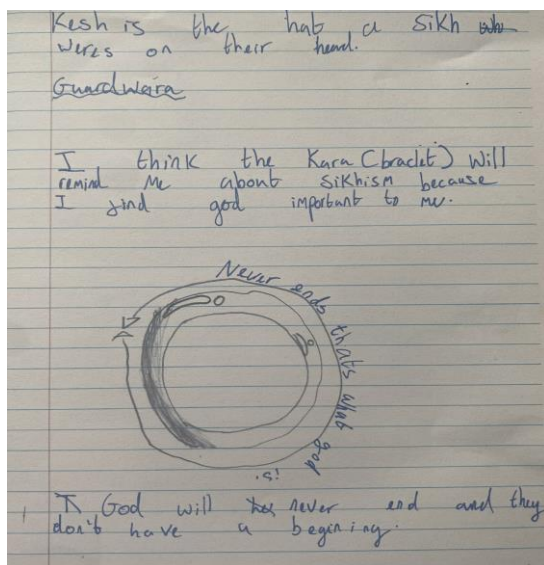 Kesh is the hat a Sikh
weres on their head.
Guardwaira
I think the Kara (braclet) will
remind me about Sikhism because
I find god important to me.
Never ends thats what god is.
God will never end and they
don't have a begining.